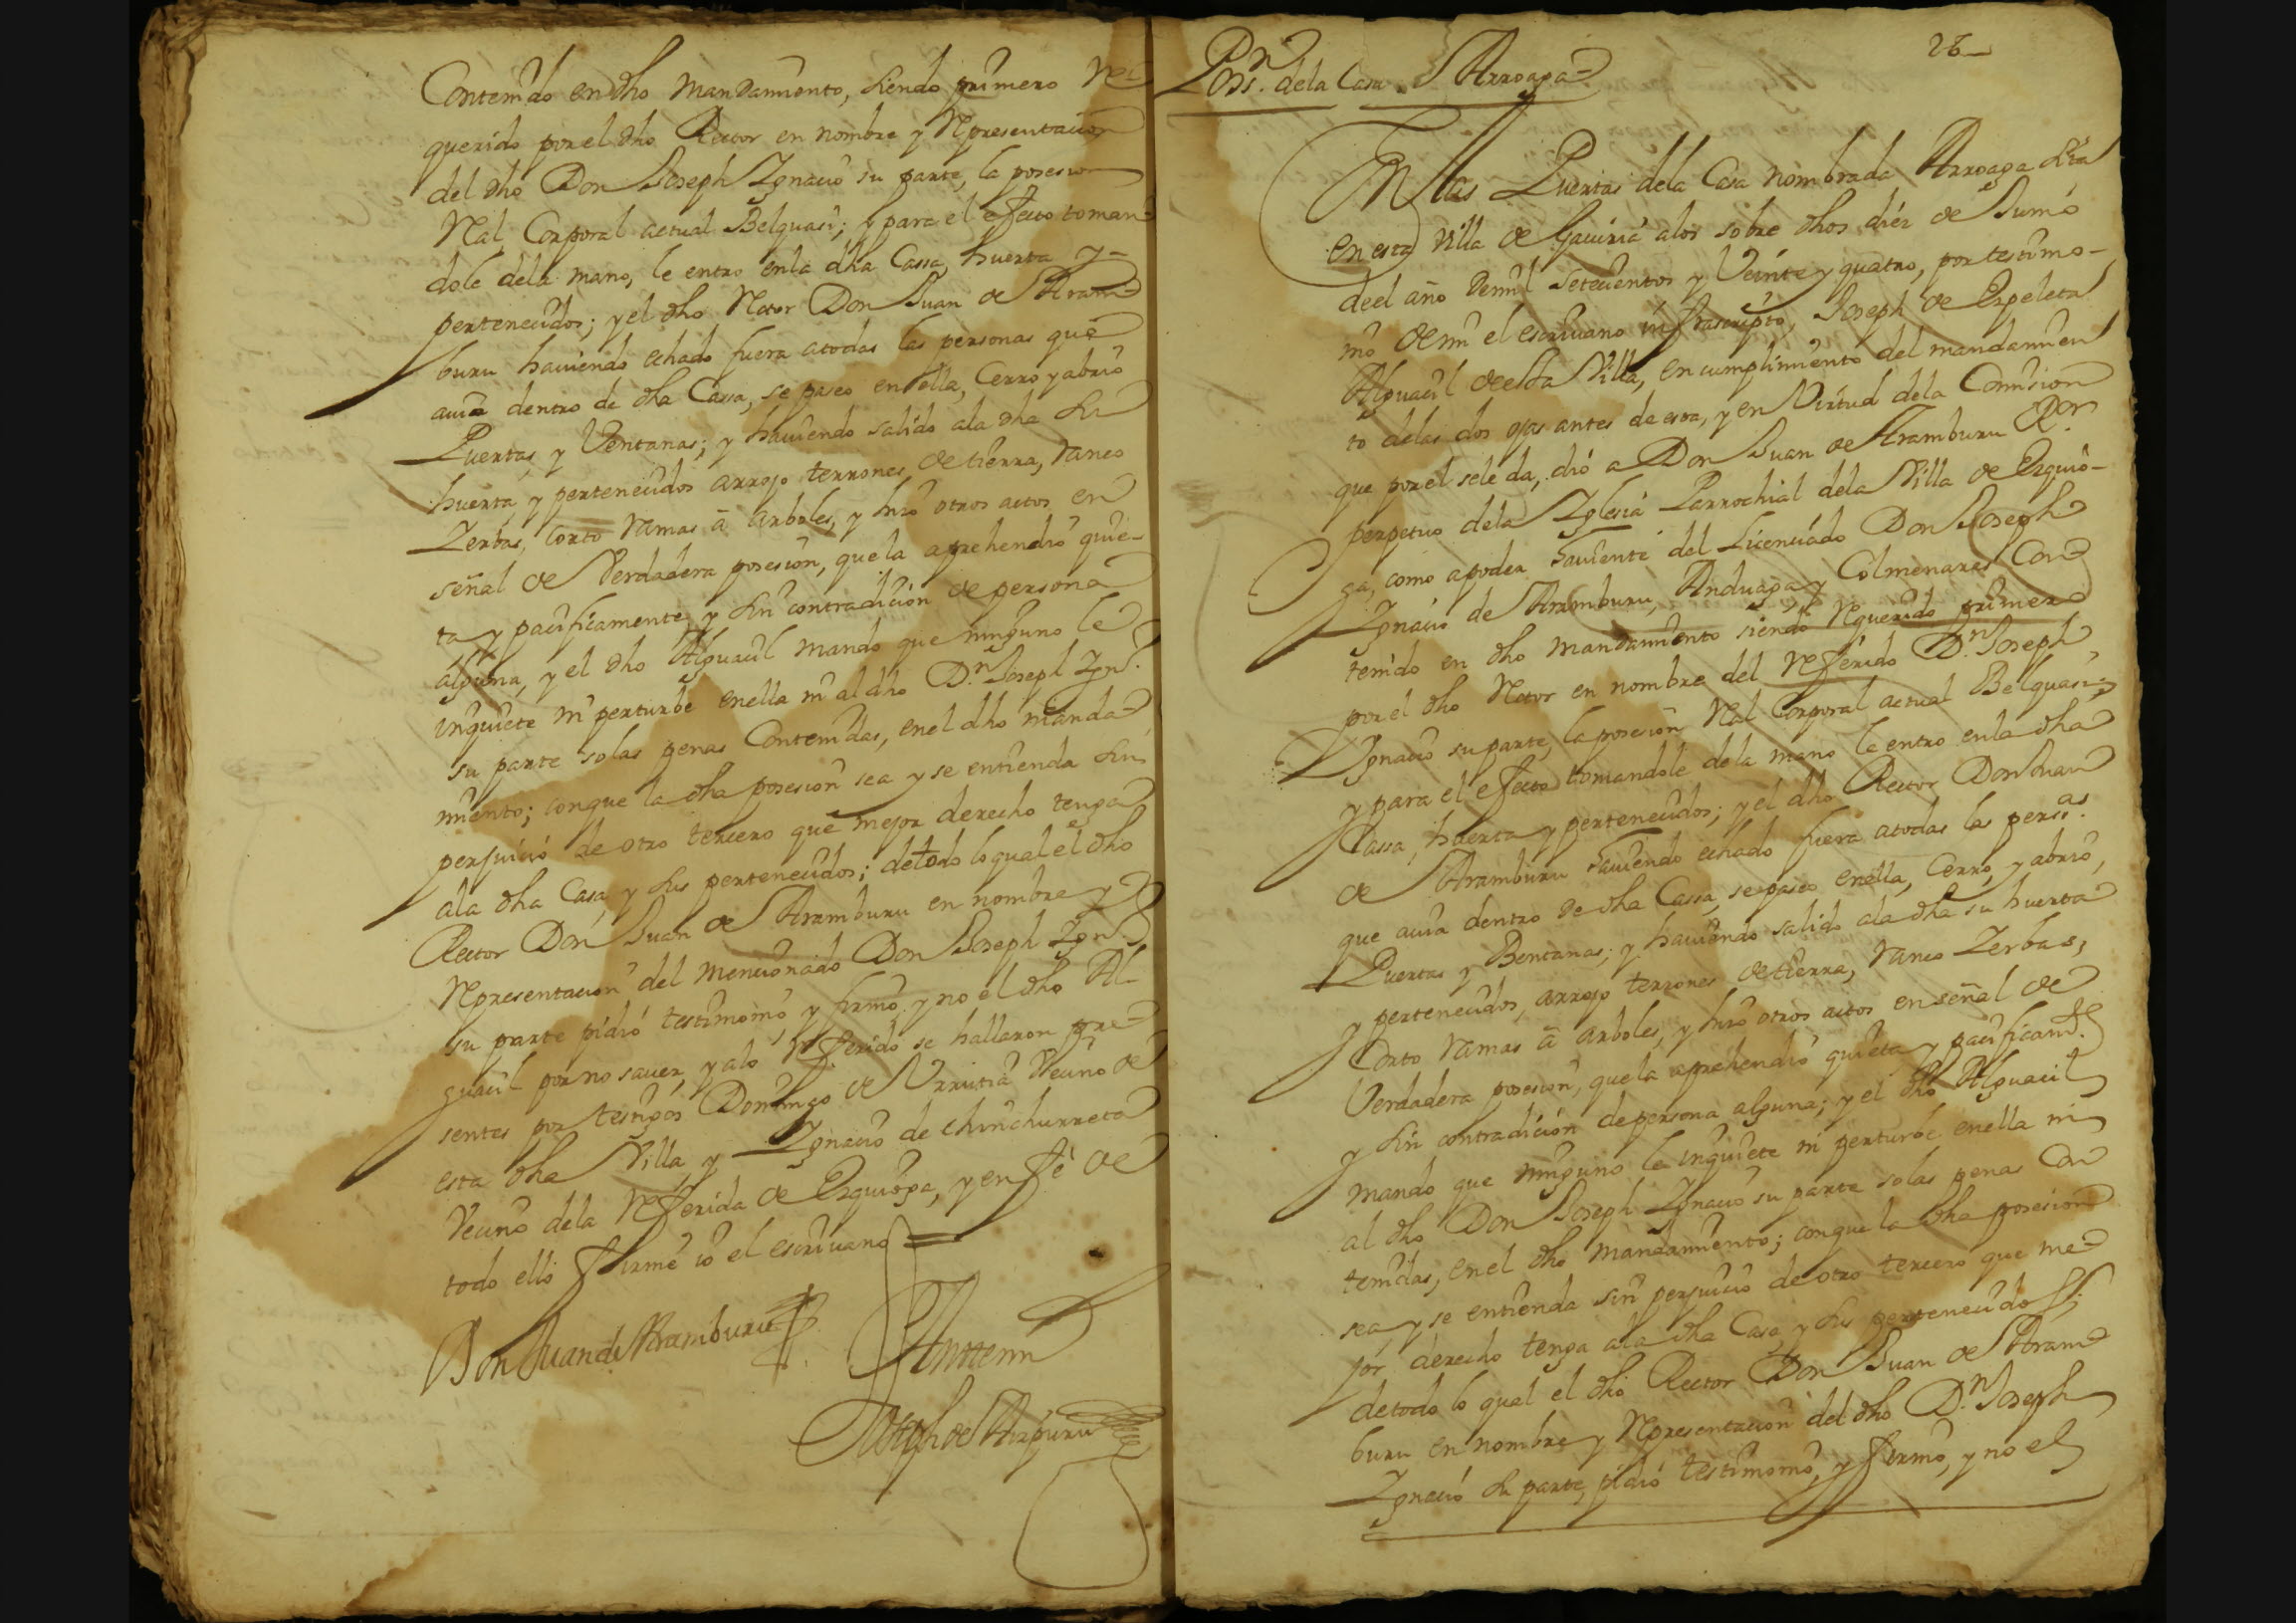 Contenido en dho mandamiento, siendo primero Re-
querido por el dho Rector en nombre y Representacion
del dho Don Joseph Ignacio su parte, la posesion
Real Corporal actual Belquasi; y para el efecto toman-
dole dela mano, le entro enla dha Cassa, huerta y
pertenecidos; y el dho Retor Don Juan de Aram-
buru haviendo echado fuera atodas las personas que
avia dentro de dha Cassa, se paseo en ella, Cerro y abrio
Puertas, y Ventanas; y haviendo salido ala dha su
huerta y pertenecidos arrojo terrones de tierra, ranco
Zerbas, Corto ramas á arboles, y hizo otros actos en
señal de Verdadera posesion, que la aprehendio quie-
ta y pacificamente, y sin contradicion de persona
alguna, y el dho Alguacil mando que ninguno le
inquiete ni perturbe enella ni al dho D.n Joseph Ign.o
su parte solas penas Contenidas, enel dho manda-
miento; conque la dha posesion sea y se entienda sin
perjuicio de otro tercero que mejor derecho tenga
ala dha Casa, y sus pertenecidos; detodo lo qual el dho
Rector Don Juan de Aramburu en nombre y
Representacion del mencionado Don Joseph Ign.o
su parte pidió testimonio, y firmó, y no el dho Al-
guacil por no saver, y alo Referido se hallaron pre-
sentes por testigos Domingo de Urrutia Vecino de
esta dha Villa, y Ignacio de Chinchurreta
Vecino dela Referida de Ezquioga, y en fé de
todo ello firmé io el escrivano
Don Juan de Aramburu
Antemi
Joseph de Aizpuru
26
Pos.on dela Casa Arroaga
En las Puertas dela Casa nombrada Arroaga sita
en esta Villa de Gaviria alos sobre dhos diez de Junio
deel año demil setecientos y Veinte y quatro, por testimo-
nio de mi el escrivano infrascripto, Joseph de Ezpeleta
Alguacil deesta Villa, en cumplimiento del mandamien
to delas dos ojas antes de esta, y en Virtud dela Comision
que por el sele da, dió a Don Juan de Aramburu R.or
perpetuo dela Iglesia Parrochial dela Villa de Ezquio-
ga, como apoder haviente del Licenciado Don Joseph
Ignacio de Aramburu, Anduaga y Colmenares Con-
tenido en dho mandamiento siendo Requerido primero
por el dho Retor en nombre del Referido D.n Joseph
Ignacio su parte, la posesion Real Corporal actual Belquasi;
y para el efecto tomandole dela mano le entro enla dha
Cassa, huerta y pertenecidos; y el dho Rector Don Juan
de Aramburu haviendo echado fuera atodas las perss.as
que avia dentro de dha Cassa, sepaseo enella, Cerro, y abrio,
Puertas y Bentanas; y haviendo salido ala dha su huerta
y pertenecidos, arrojo terrones de tierra, ranco Zerbas,
Corto ramas á arboles, y hizo otros actos en señal de
Verdadera posesion, quela aprehendio quieta y pacificam.te
y sin contradicion depersona alguna; y el dho Alguacil
mando que ninguno le inquiete ni perturbe enella ni
al dho Don Joseph Ignacio su parte solas penas Con
tenidas, en el dho mandamiento; conque la dha posesion
sea y se entienda sin perjuicio de otro tercero que me-
jor derecho tenga ala dha Casa, y sus pertenecidos;
detodo lo qual el dho Rector Don Juan de Aram-
buru en nombre y Representacion del dho D.n Joseph
Ignacio su parte, pidió testimonio, y firmó, y no el